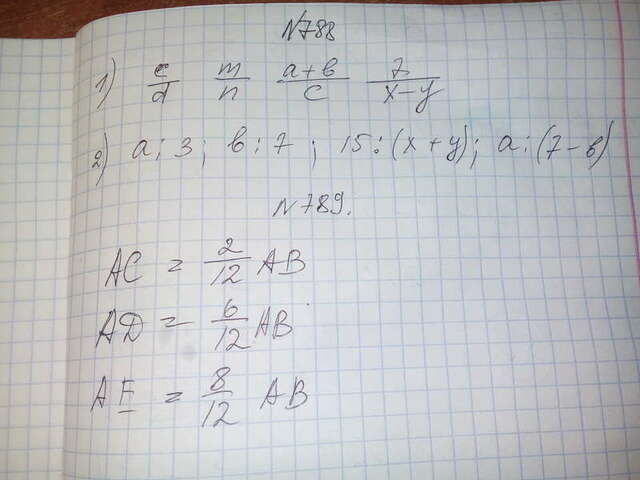 №788
1) c/d m/n a+b/c 7/x-y
2) a:3; b:7; 15:(x+y); a:(7-b)
№789.
AC = 2/12 AB
AD = 6/12 AB
AE = 8/12 AB